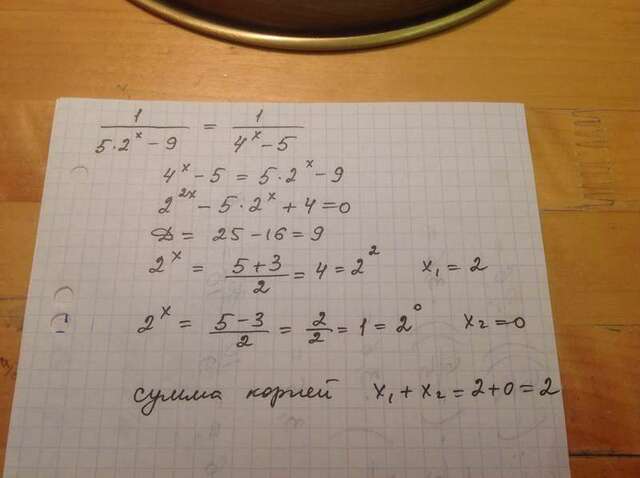 1/(5·2ˣ - 9) = 1/(4ˣ - 5)
4ˣ - 5 = 5·2ˣ - 9
2²ˣ - 5·2ˣ + 4 = 0
Д = 25 - 16 = 9
2ˣ = (5+3)/2 = 4 = 2² x₁ = 2
2ˣ = (5-3)/2 = 2/2 = 1 = 2⁰ x₂ = 0
сумма корней x₁ + x₂ = 2+0 = 2